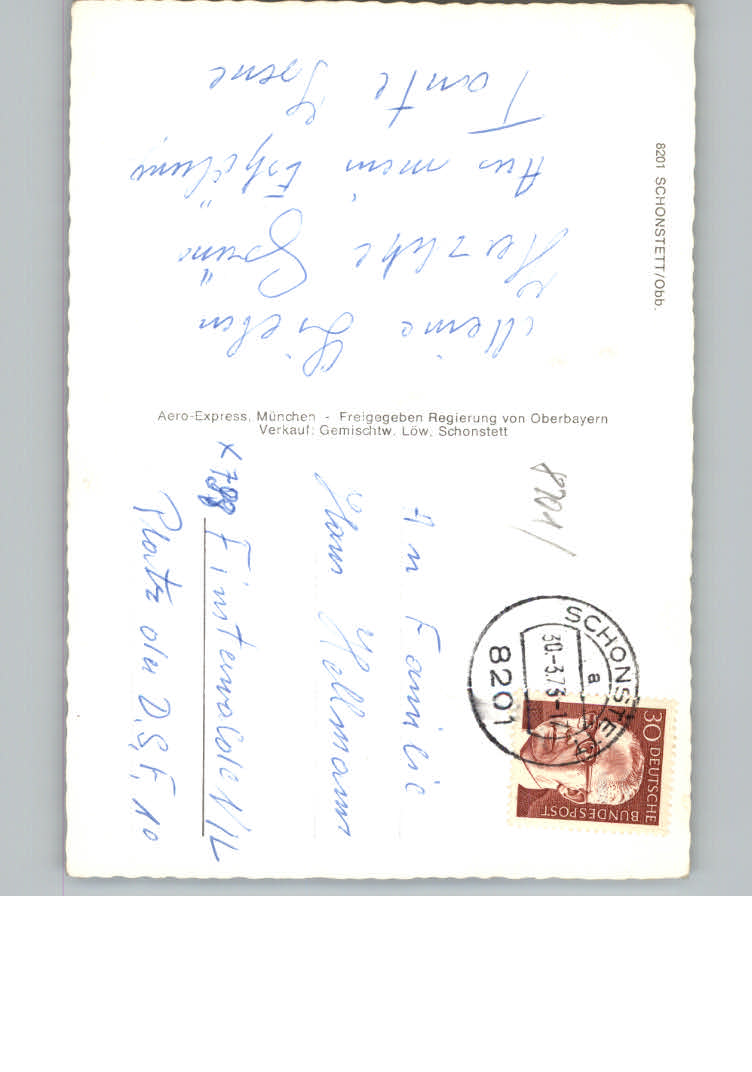 8201 SCHONSTETT/Obb.
Meine Lieben
Herzliche Grüße
Aus mein
Tante Irene
Aero-Express, München - Freigegeben Regierung von Oberbayern
Verkauf: Gemischtw. Löw, Schonstett
8201
SCHONSTE
a
30.-3.73-17
8201
30 DEUTSCHE
BUNDESPOST
An Familie
Hans Hellmann
X 798 Finsterwalde N/L
Platz der D.S.F. 10